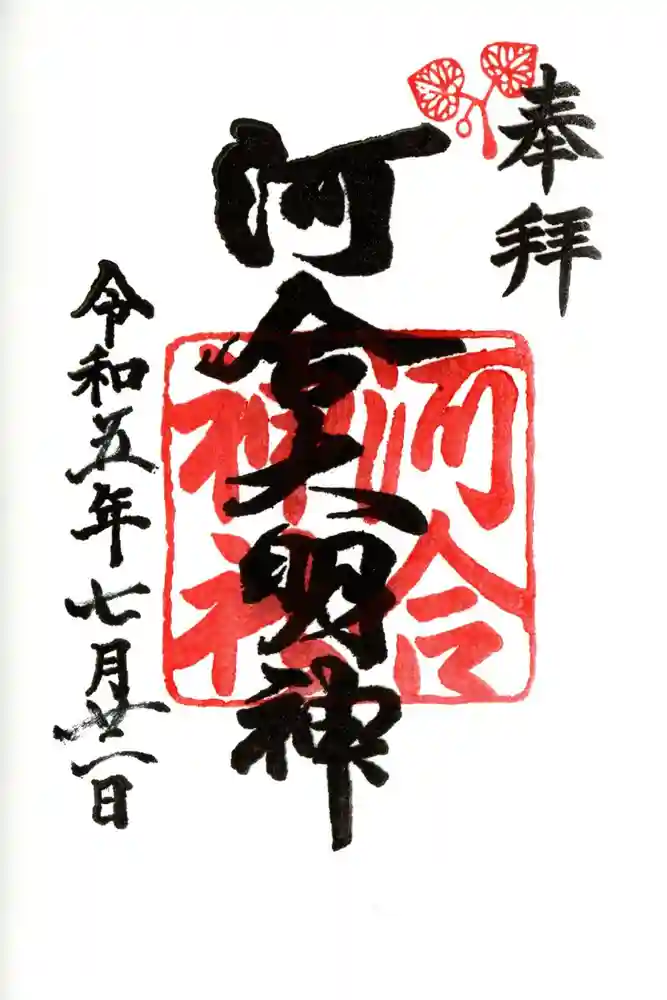 奉拝
河合大明神
河合
神社
令和五年七月廿二日